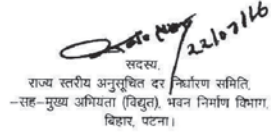 22/07/16
सदस्य,
राज्य स्तरीय अनुसूचित दर निर्धारण समिति,
-सह-मुख्य अभियंता (विद्युत), भवन निर्माण विभाग,
बिहार, पटना।